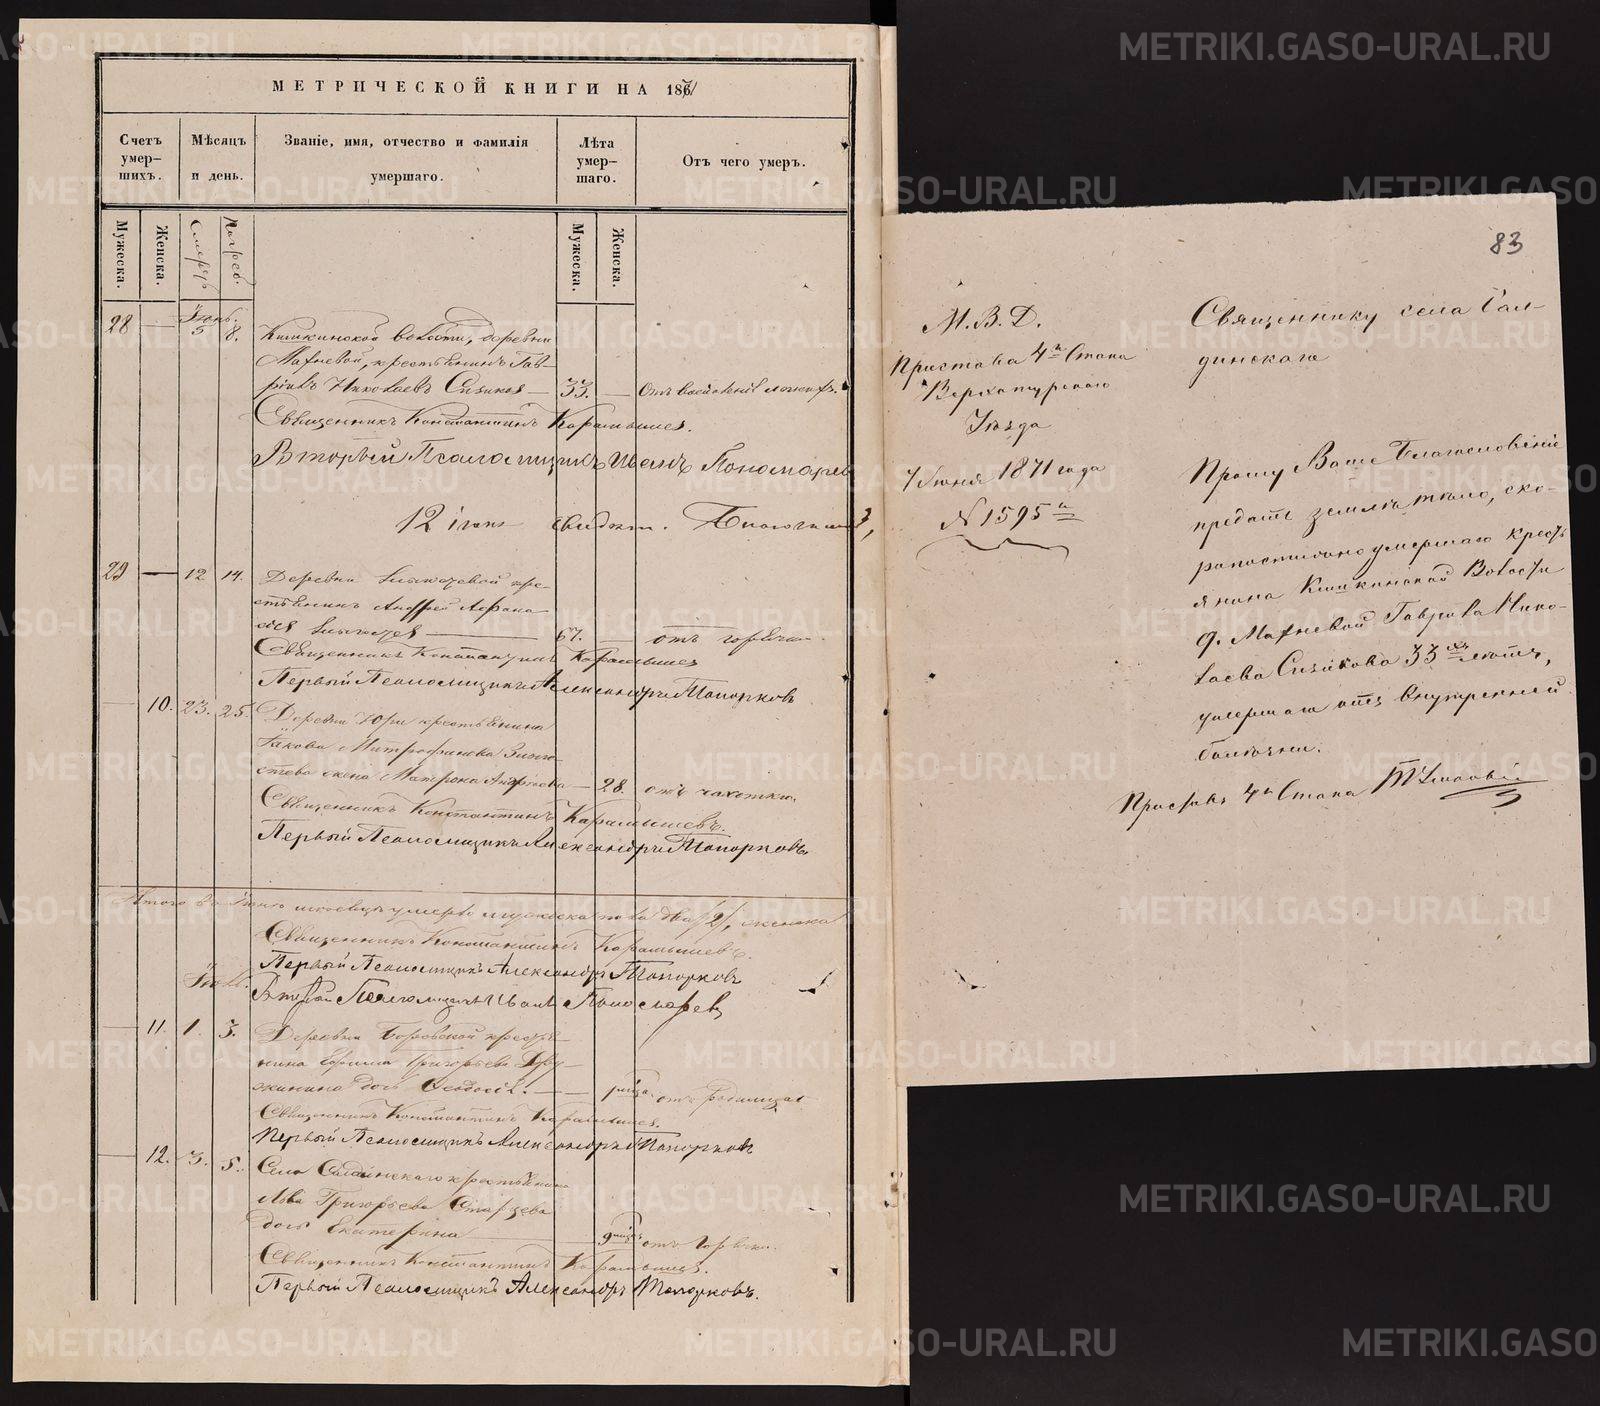 МЕТРИЧЕСКОЙ КНИГИ НА 1871
Счетъ умер-шихъ.
Мѣсяцъ и день.
Званіе, имя, отчество и фамилія умершаго.
Лѣта умер-шаго.
Отъ чего умеръ.
Мужеска.
Женска.
Смерт.
Погреб.
Мужеска.
Женска.
Іюнь.
28 — 5 8. Кишкинской волости, деревни
Махневой, крестьянинъ Гав-
ріилъ Николаевъ Сизиковъ — 33. — Отъ
Священникъ Константинъ Карамышевъ.
Вторый Псаломщикъ Иванъ Пономаревъ
12 іюня
29 — 12 14. Деревни кре-
стьянинъ Андрей Афана-
сіевъ — 67. — отъ горячки.
Священникъ Константинъ Карамышевъ
Первый Псаломщикъ Александръ Топорковъ
— 10. 23. 25. Деревни крестьянина
Іакова Митрофанова
жена Матрона Андреева — 28. отъ чахотки.
Священникъ Константинъ Карамышевъ.
Первый Псаломщикъ Александръ Топорковъ
Итого въ Іюнѣ мѣсяцѣ умерло мужеска пола два /2/, женска
Священникъ Константинъ Карамышевъ.
Первый Псаломщикъ Александръ Топорковъ
Вторый Псаломщикъ Иванъ Пономаревъ
Іюль.
— 11. 1. 3. Деревни Боровской кресть-
янина Григорьева Дру-
жинина дочь Ѳеодосія. — — отъ родимца
Священникъ Константинъ Карамышевъ.
Первый Псаломщикъ Александръ Топорковъ
— 12. 3. 5. Села Салдинскаго крестьянина
Льва Григорьева Старцева
дочь Екатерина
Священникъ Константинъ Карамышевъ.
Первый Псаломщикъ Александръ Топорковъ.
83
М. В. Д.
Пристава 4го Стана
Верхотурскаго
Уѣзда
7 Іюня 1871 года
№ 1595
Священнику села Сал-
динскаго
Прошу Ваше Благословеніе
предать землѣ тѣло, ско-
ропостижно умершаго кресть-
янина Кишкинской Волости
д. Махневой Гаврила Нико-
лаева Сизикова 33хъ лѣтъ,
умершаго отъ внутренней
болѣзни.
Приставъ 4го Стана
METRIKI.GASO-URAL.RU